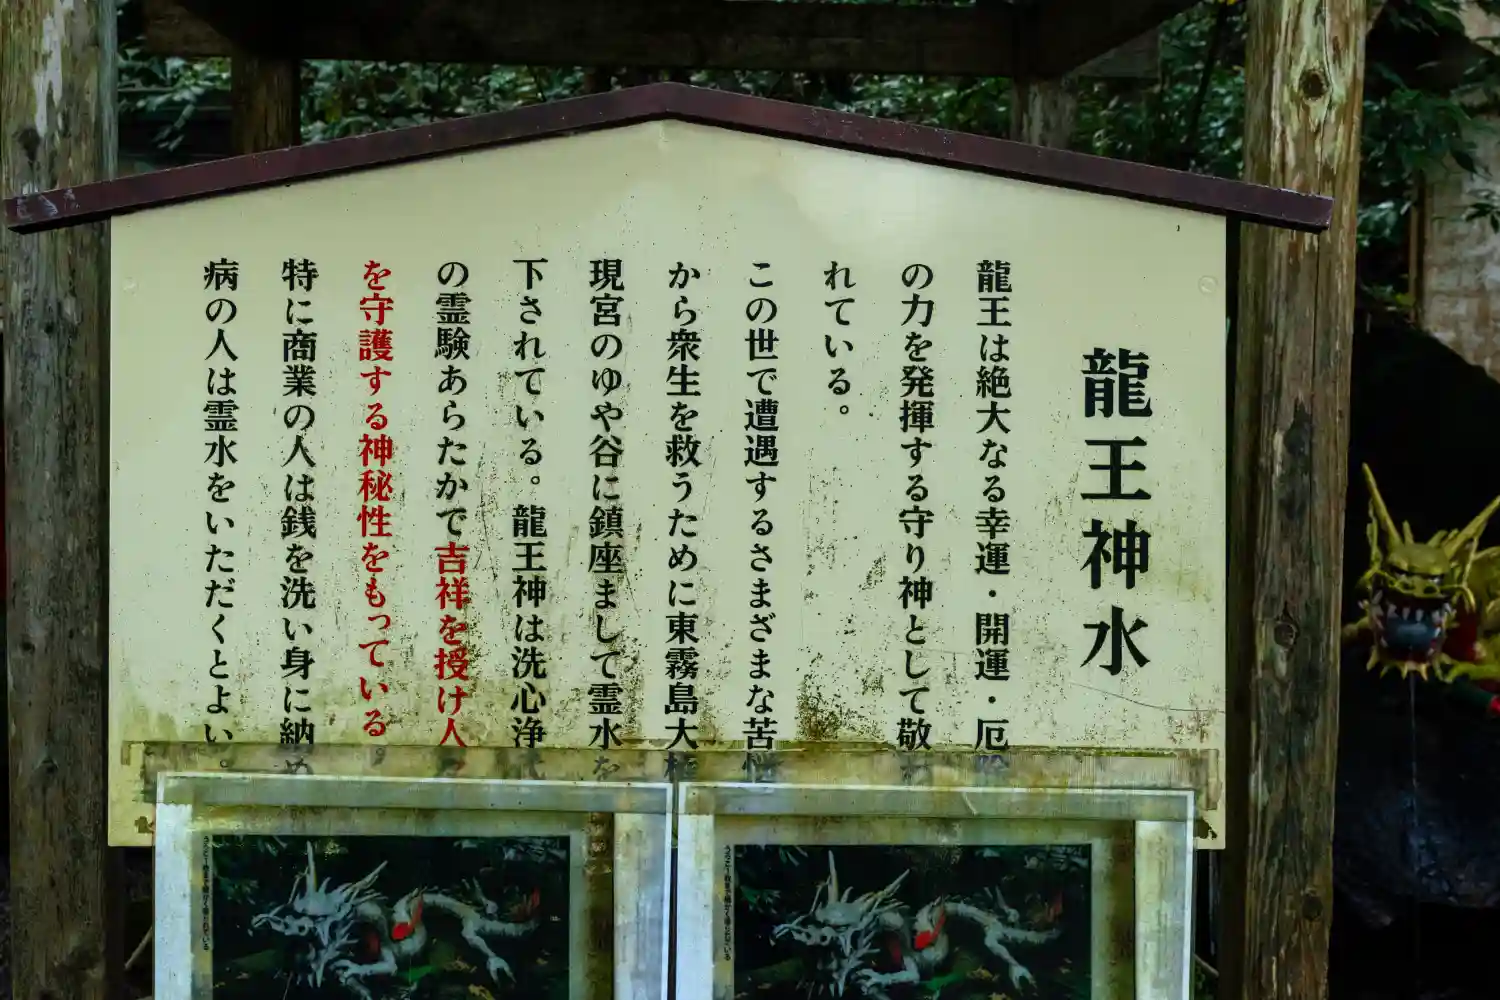 龍王神水
龍王は絶大なる幸運・開運・厄除
の力を発揮する守り神として敬わ
れている。
この世で遭遇するさまざまな苦悩
から衆生を救うために東霧島大権
現宮のゆや谷に鎮座まして霊水を
下されている。龍王神は洗心浄
の霊験あらたかで吉祥を授け人々
を守護する神秘性をもっている。
特に商業の人は銭を洗い身に納め
病の人は霊水をいただくとよい。